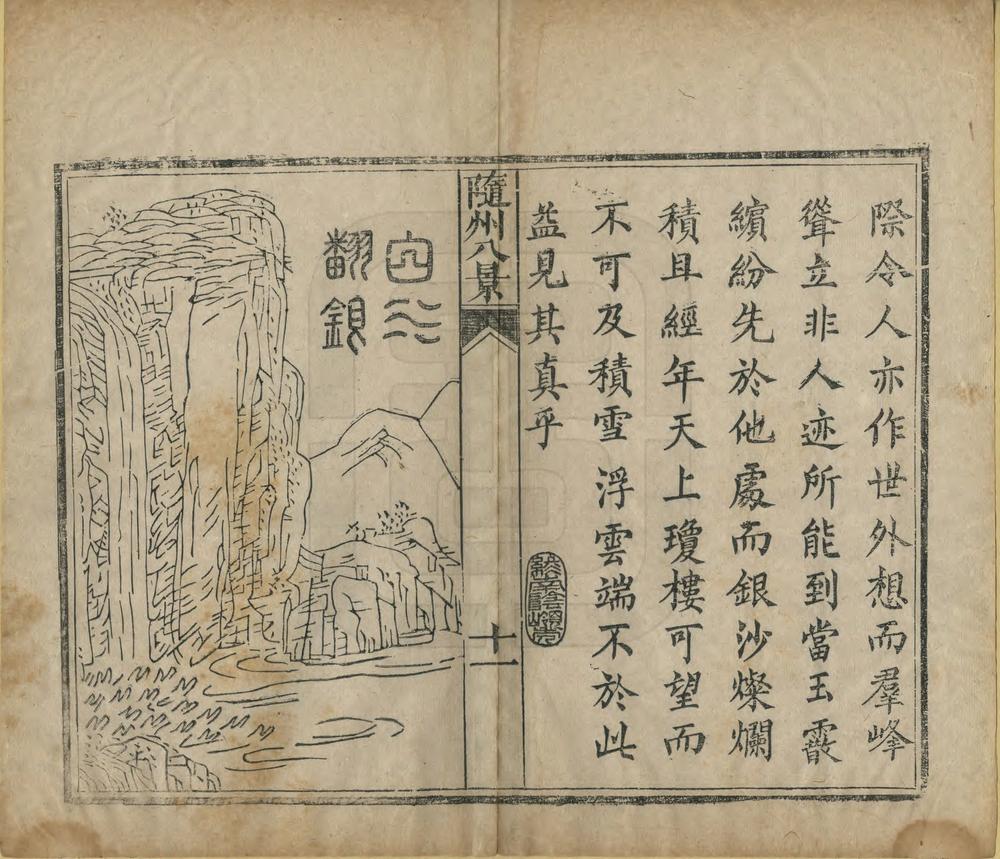 際令人亦作世外想而羣峰
聳立非人迹所能到當玉霰
繽紛先於他處而銀沙燦爛
積且經年天上瓊樓可望而
不可及積雪浮雲端不於此
益見其真乎
隨州八景
十一
翻銀